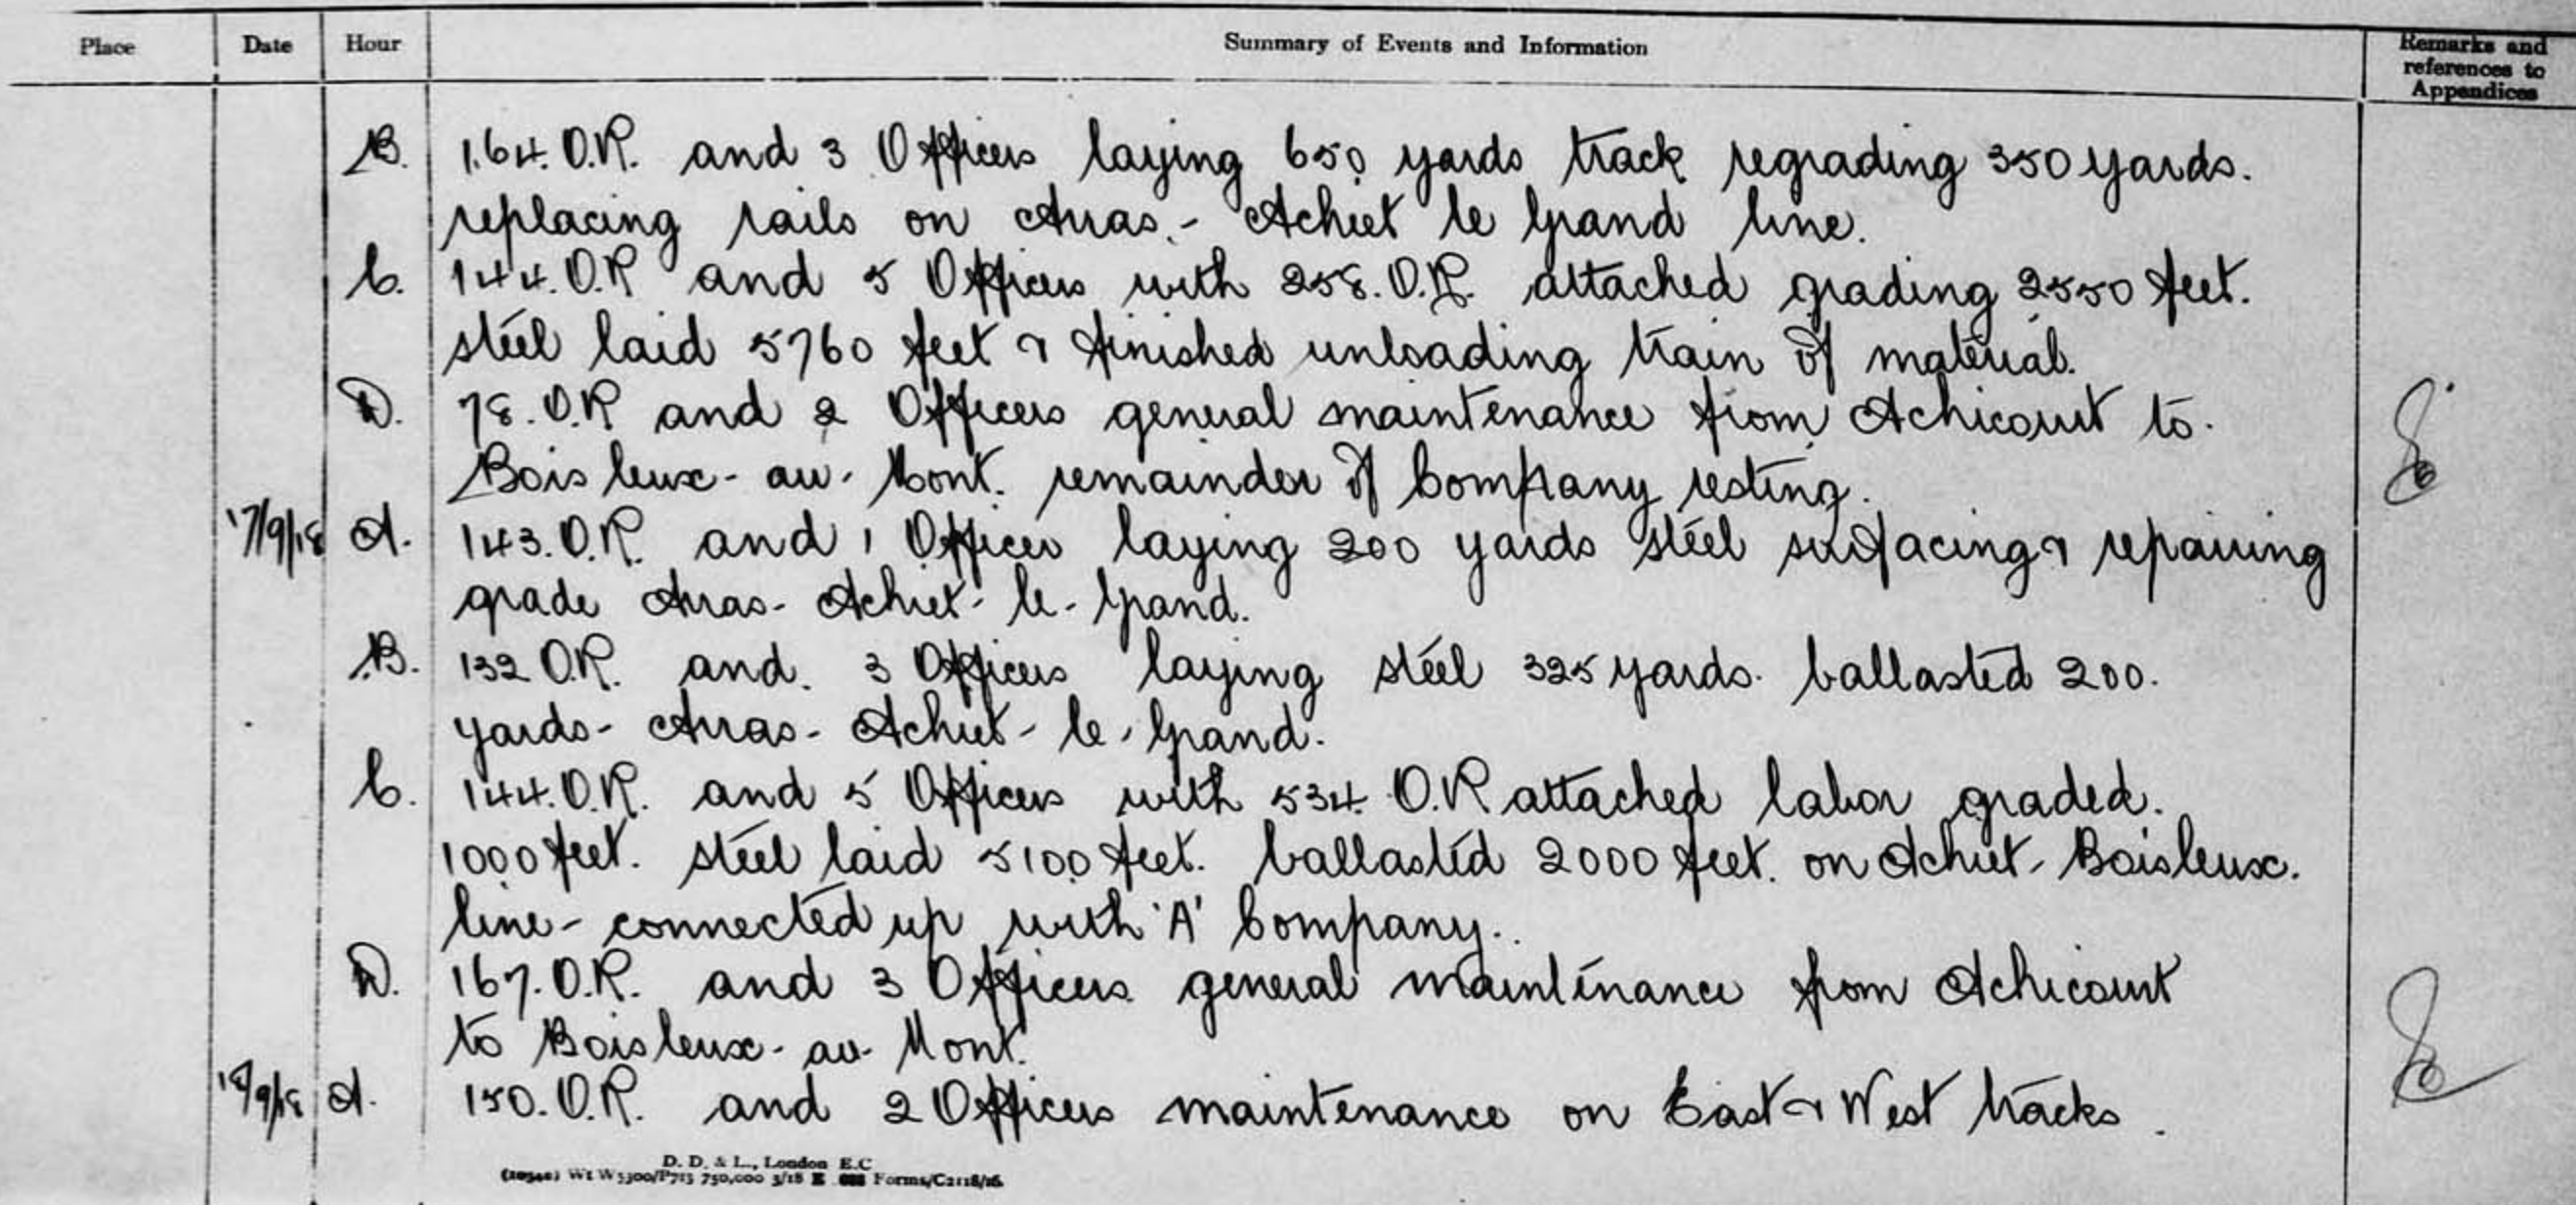 Place Date Hour Summary of Events and Information Remarks and references to Appendices
B. 164. O.R. and 3 Officers laying 650 yards track regrading 350 yards.
replacing rails on Arras.- Achiet le Grand line.
C. 144. O.R and 5 Officers with 258. O.R. attached grading 2550 feet.
steel laid 5760 feet & finished unloading train of material.
D. 78. O.R and 2 Officers general maintenance from Achicourt to.
Boisleux- au- Mont. remainder of Company resting.
17/9/18 A. 143. O.R. and 1 Officer laying 200 yards steel surfacing & repairing
grade Arras- Achiet- le- Grand.
B. 132 O.R. and. 3 Officers laying steel 325 yards. ballasted 200.
yards- Arras- Achiet- le- Grand.
C. 144. O.R. and 5 Officers with 534. O.R attached labor graded.
1000 feet. steel laid 5100 feet. ballasted 2000 feet. on Achiet- Boisleux.
line- connected up with 'A' Company.
D. 167. O.R. and 3 Officers general maintenance from Achicourt
to Boisleux- au- Mont.
18/9/18 A. 150. O.R. and 2 Officers maintenance on East & West tracks.
D. D. & L., London E.C
Wt W5300/P713 750,000 3/18 E Forms/C2118/16.